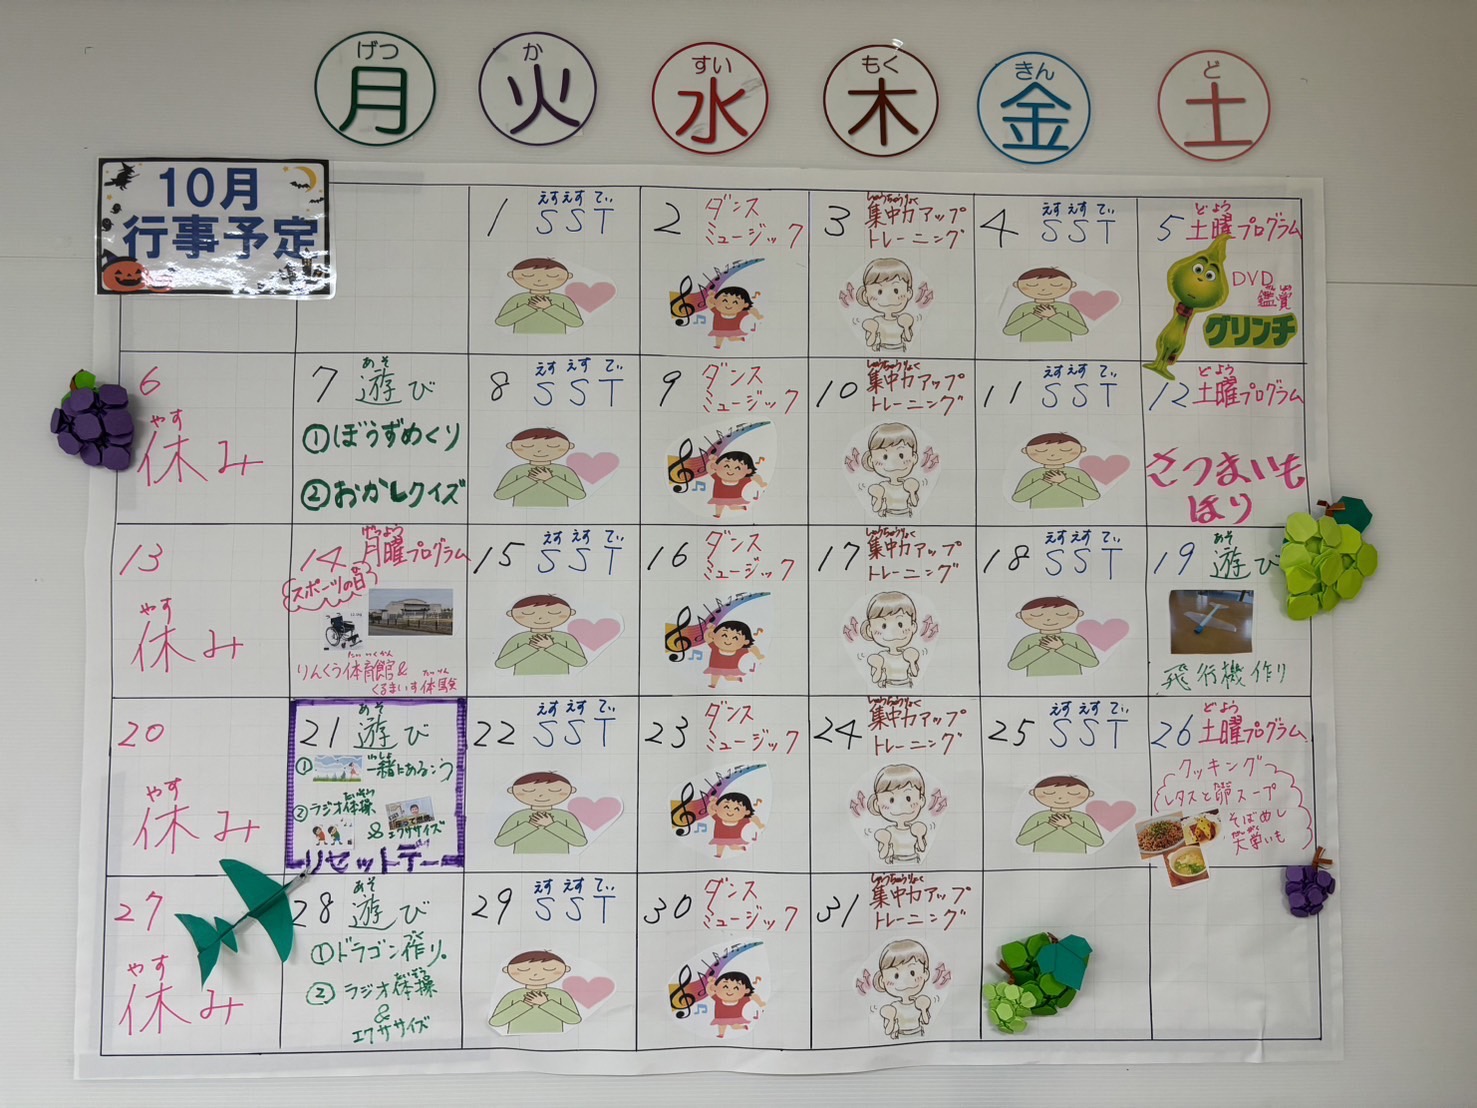 げつ
月
か
火
すい
水
もく
木
きん
金
ど
土
10月
行事予定
1 えすえすてぃ
SST
2 ダンス
ミュージック
3 しゅうちゅうりょく
集中力アップ
トレーニング
4 えすえすてぃ
SST
5 どよう
土曜プログラム
DVD
鑑賞
グリンチ
6
やす
休み
7 あそ
遊び
①ぼうずめくり
②おかしクイズ
8 えすえすてぃ
SST
9 ダンス
ミュージック
10 しゅうちゅうりょく
集中力アップ
トレーニング
11 えすえすてぃ
SST
12 どよう
土曜プログラム
さつまいも
ほり
13
やす
休み
14 げつよう
月曜プログラム
スポーツの日
りんくう体育館&
くるまいす体験
15 えすえすてぃ
SST
16 ダンス
ミュージック
17 しゅうちゅうりょく
集中力アップ
トレーニング
18 えすえすてぃ
SST
19 あそ
遊び
飛行機作り
20
やす
休み
21 あそ
遊び
① 一緒にあるこう
②ラジオ体操
&エクササイズ
リセットデー
22 えすえすてぃ
SST
23 ダンス
ミュージック
24 しゅうちゅうりょく
集中力アップ
トレーニング
25 えすえすてぃ
SST
26 どよう
土曜プログラム
クッキング
レタスと卵スープ
そばめし
大学いも
27
やす
休み
28 あそ
遊び
①ドラゴン作り。
②ラジオ体操
&
エクササイズ
29 えすえすてぃ
SST
30 ダンス
ミュージック
31 しゅうちゅうりょく
集中力アップ
トレーニング